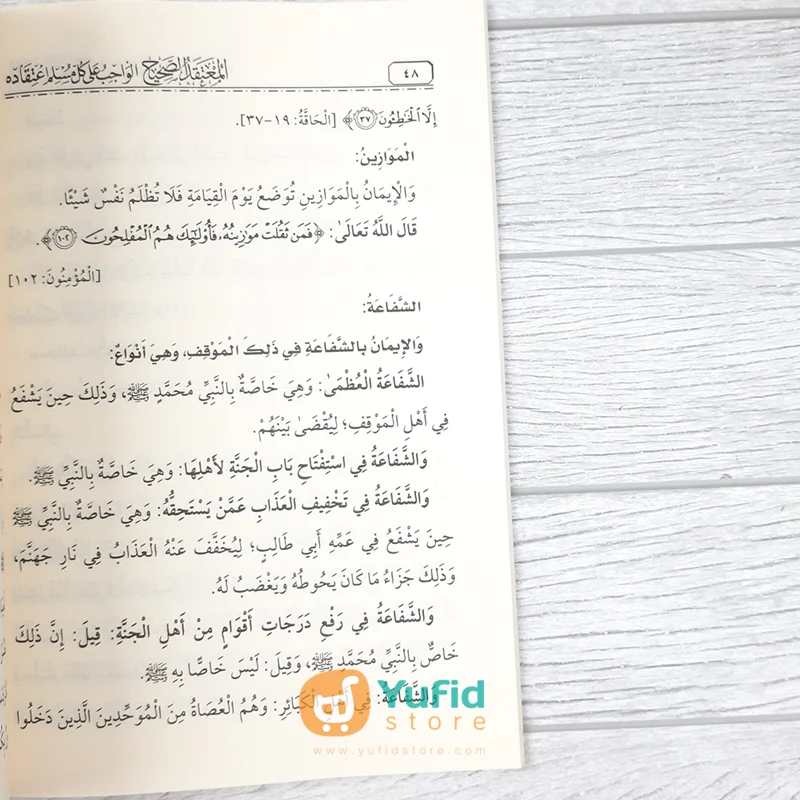 ٤٨
المعتقد الصحيح الواجب على كل مسلم اعتقاده
إِلَّا الْخَاطِئُونَ ﴿٣٧﴾ [الْحَاقَّةُ: ١٩-٣٧].
الْمَوَازِينُ:
وَالْإِيمَانُ بِالْمَوَازِينِ تُوضَعُ يَوْمَ الْقِيَامَةِ فَلَا تُظْلَمُ نَفْسٌ شَيْئًا.
قَالَ اللَّهُ تَعَالَىٰ: ﴿فَمَن ثَقُلَتْ مَوَازِينُهُ فَأُولَٰئِكَ هُمُ الْمُفْلِحُونَ ١٠٢﴾.
[الْمُؤْمِنُونَ: ١٠٢]
الشَّفَاعَةُ:
وَالْإِيمَانُ بِالشَّفَاعَةِ فِي ذَلِكَ الْمَوْقِفِ، وَهِيَ أَنْوَاعٌ:
الشَّفَاعَةُ الْعُظْمَىٰ: وَهِيَ خَاصَّةٌ بِالنَّبِيِّ مُحَمَّدٍ ﷺ، وَذَلِكَ حِينَ يَشْفَعُ
فِي أَهْلِ الْمَوْقِفِ؛ لِيُقْضَىٰ بَيْنَهُمْ.
وَالشَّفَاعَةُ فِي اسْتِفْتَاحِ بَابِ الْجَنَّةِ لِأَهْلِهَا: وَهِيَ خَاصَّةٌ بِالنَّبِيِّ ﷺ.
وَالشَّفَاعَةُ فِي تَخْفِيفِ الْعَذَابِ عَمَّنْ يَسْتَحِقُّهُ: وَهِيَ خَاصَّةٌ بِالنَّبِيِّ ﷺ
حِينَ يَشْفَعُ فِي عَمِّهِ أَبِي طَالِبٍ؛ لِيُخَفَّفَ عَنْهُ الْعَذَابُ فِي نَارِ جَهَنَّمَ،
وَذَلِكَ جَزَاءُ مَا كَانَ يَحُوطُهُ وَيَغْضَبُ لَهُ.
وَالشَّفَاعَةُ فِي رَفْعِ دَرَجَاتِ أَقْوَامٍ مِنْ أَهْلِ الْجَنَّةِ: قِيلَ: إِنَّ ذَلِكَ
خَاصٌّ بِالنَّبِيِّ مُحَمَّدٍ ﷺ، وَقِيلَ: لَيْسَ خَاصًّا بِهِ ﷺ.
وَالشَّفَاعَةُ: فِي أَهْلِ الْكَبَائِرِ: وَهُمُ الْعُصَاةُ مِنَ الْمُوَحِّدِينَ الَّذِينَ دَخَلُوا
Yufid
store
www.yufidstore.com